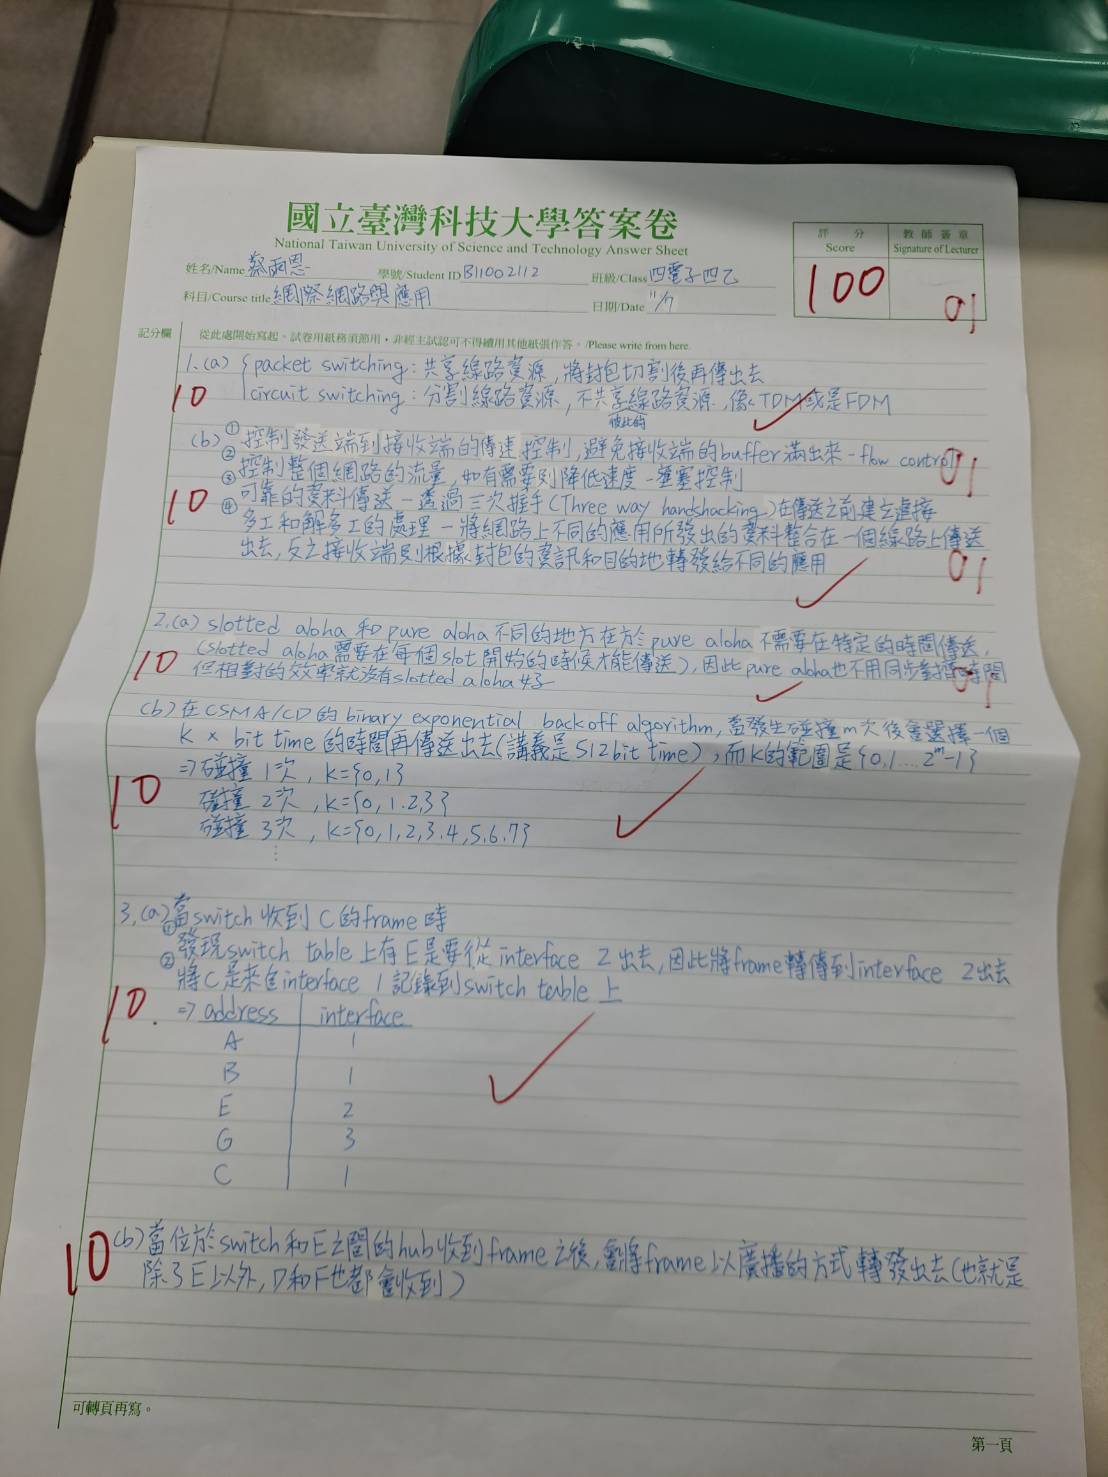 國立臺灣科技大學答案卷
National Taiwan University of Science and Technology Answer Sheet
姓名/Name 蔡雨恩 學號/Student ID B11002112 班級/Class 四電子四乙
科目/Course title 網際網路與應用 日期/Date 11/7
評分 Score 100
教師簽章 Signature of Lecturer
記分欄 從此處開始寫起。試卷用紙務須節用,非經主試認可不得續用其他紙張作答。/Please write from here.
1.(a) { packet switching:共享線路資源,將封包切割後再傳出去
10 circuit switching:分割線路資源,不共享線路資源,像TDM或是FDM
彼此的
(b) ① 控制發送端到接收端的傳速控制,避免接收端的buffer滿出來-flow control
② 控制整個網路的流量,如有需要則降低速度-壅塞控制
10 ③ 可靠的資料傳送-透過三次握手(Three way handshacking)在傳送之前建立連接
④ 多工和解多工的處理-將網路上不同的應用所發出的資料整合在一個線路上傳送
出去,反之接收端則根據封包的資訊和目的地轉發給不同的應用
2.(a) slotted aloha 和 pure aloha 不同的地方在於 pure aloha 不需要在特定的時間傳送,
10 (slotted aloha 需要在每個slot開始的時候才能傳送),因此pure aloha也不用同步對齊時間
但相對的效率就沒有slotted aloha好
(b) 在CSMA/CD的binary exponential backoff algorithm,當發生碰撞m次後會選擇一個
K × bit time 的時間再傳送出去(講義是512bit time),而K的範圍是{0,1....2^m-1}
10 => 碰撞 1次, K={0,1}
碰撞 2次, K={0,1.2,3}
碰撞 3次, K={0,1,2,3.4,5.6.7}
⋮
3.(a) 當switch收到C的frame時
① 發現switch table上有E是要從interface 2出去,因此將frame轉傳到interface 2出去
② 將C是來自interface 1記錄到switch table上
10. => address interface
A 1
B 1
E 2
G 3
C 1
10 (b) 當位於switch和E之間的hub收到frame之後,會將frame以廣播的方式轉發出去(也就是
除了E以外,D和F也都會收到)
可轉頁再寫。
第一頁